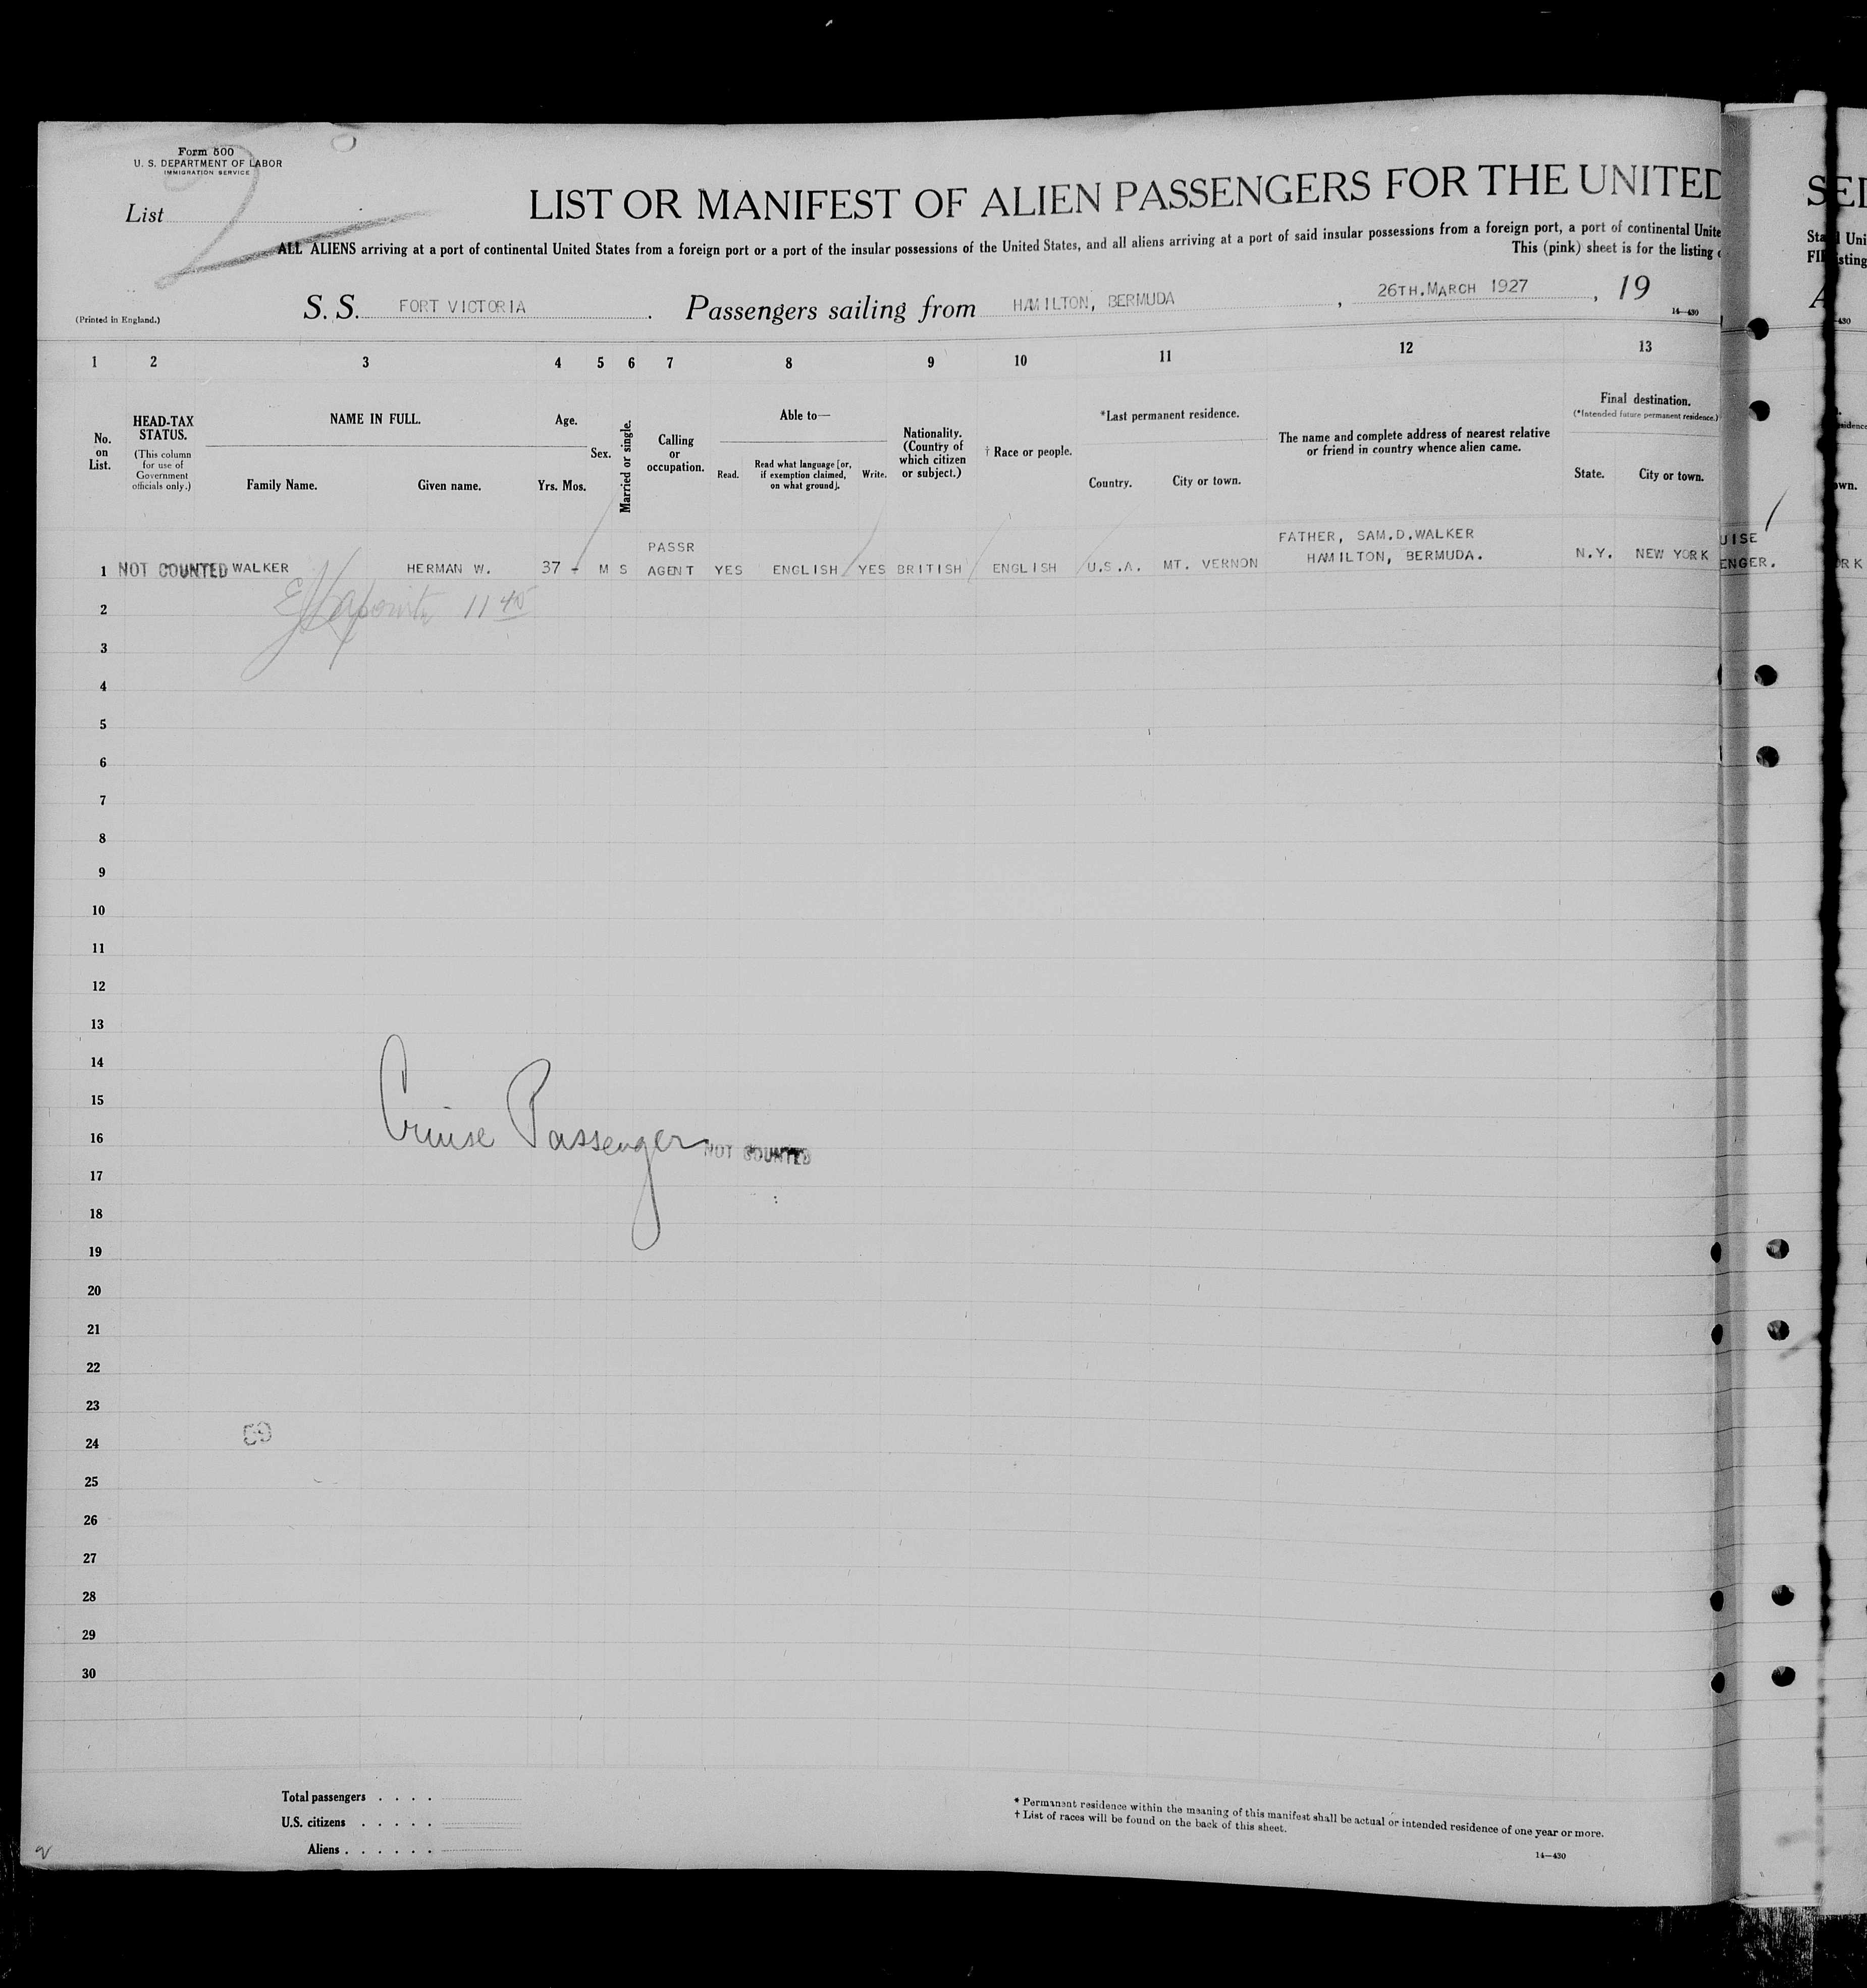 Form 500
U. S. DEPARTMENT OF LABOR
IMMIGRATION SERVICE
List 2
LIST OR MANIFEST OF ALIEN PASSENGERS FOR THE UNITED
ALL ALIENS arriving at a port of continental United States from a foreign port or a port of the insular possessions of the United States, and all aliens arriving at a port of said insular possessions from a foreign port, a port of continental Unite
This (pink) sheet is for the listing
(Printed in England.)
S. S. FORT VICTORIA. Passengers sailing from HAMILTON, BERMUDA, 26TH.MARCH 1927, 19
14—430
1 2 3 4 5 6 7 8 9 10 11 12 13
No. on List.
HEAD-TAX STATUS.
(This column for use of Government officials only.)
NAME IN FULL.
Family Name. Given name.
Age.
Yrs. Mos.
Sex.
Married or single.
Calling or occupation.
Able to—
Read.
Read what language [or, if exemption claimed, on what ground].
Write.
Nationality. (Country of which citizen or subject.)
† Race or people.
*Last permanent residence.
Country. City or town.
The name and complete address of nearest relative or friend in country whence alien came.
Final destination.
(*Intended future permanent residence.)
State. City or town.
1 NOT COUNTED WALKER HERMAN W. 37 - M S PASSR AGENT YES ENGLISH YES BRITISH ENGLISH U.S.A. MT. VERNON FATHER, SAM.D.WALKER HAMILTON, BERMUDA. N.Y. NEW YORK
UISE
ENGER.
2 11 45
3
4
5
6
7
8
9
10
11
12
13
14
15
16
17
18
19
20
21
22
23
24
25
26
27
28
29
30
Cruise Passenger NOT COUNTED
Total passengers . . . .
U.S. citizens . . . . .
Aliens . . . . . .
* Permanent residence within the meaning of this manifest shall be actual or intended residence of one year or more.
† List of races will be found on the back of this sheet.
14—430